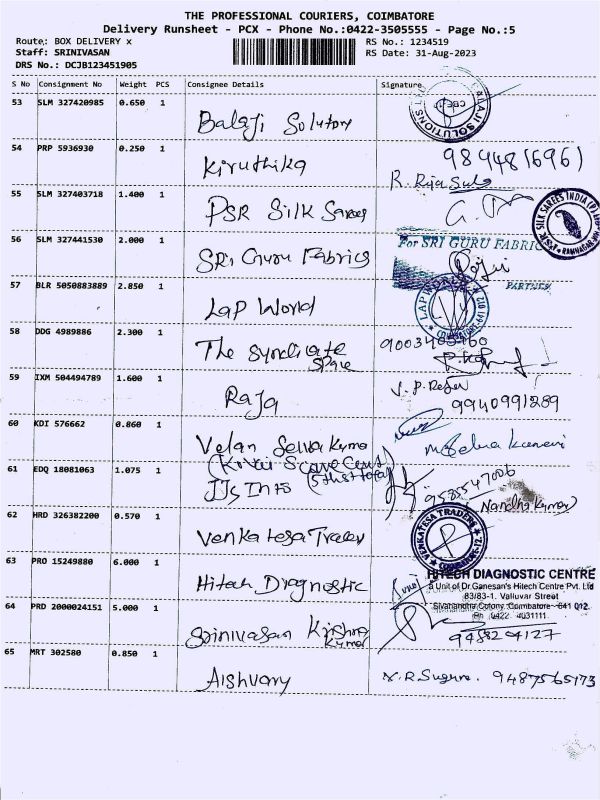 THE PROFESSIONAL COURIERS, COIMBATORE
Delivery Runsheet - PCX - Phone No.:0422-3505555 - Page No.:5
Route: BOX DELIVERY x
RS No.: 1234519
Staff: SRINIVASAN
RS Date: 31-Aug-2023
DRS No.: DCJB123451905
S No Consignment No Weight PCS Consignee Details Signature
53 SLM 327420985 0.650 1
Balaji Solution
54 PRP 5936930 0.250 1
Kiruthika
R. Raja
55 SLM 327403718 1.400 1
PSR Silk Sarees
SILK SAREES INDIA (P)
RAMNAGAR
56 SLM 327441530 2.000 1
SRi Guru Fabrics
For SRI GURU FABRIC
PARTNER
57 BLR 5050883889 2.850 1
Lap World
LAP WORLD
58 DDG 4989886 2.300 1
The Syndicate
Space
59 IXM 504494789 1.600 1
Raja
9940991289
60 KDI 576662 0.860 1
Velan Selva Kumar
61 EDQ 18081063 1.075 1
JJs Info
9585547006
Nandha Kumar
62 HRD 326382200 0.570 1
Venkatesa Trader
VENKATESA TRADERS
COIMBATORE-12
63 PRO 15249880 6.000 1
Hitech Diagnostic
HITECH DIAGNOSTIC CENTRE
A Unit of Dr.Ganesan's Hitech Centre Pvt. Ltd
83/83-1. Valluvar Street
Sivanandha Colony. Coimbatore - 641 012.
Ph : 0422 - 4031111.
64 PRD 2000024151 5.000 1
Srinivasan Krishna
Kumar
9488204127
65 MRT 302580 0.850 1
Aishvary
R. Suguna. 9487565173